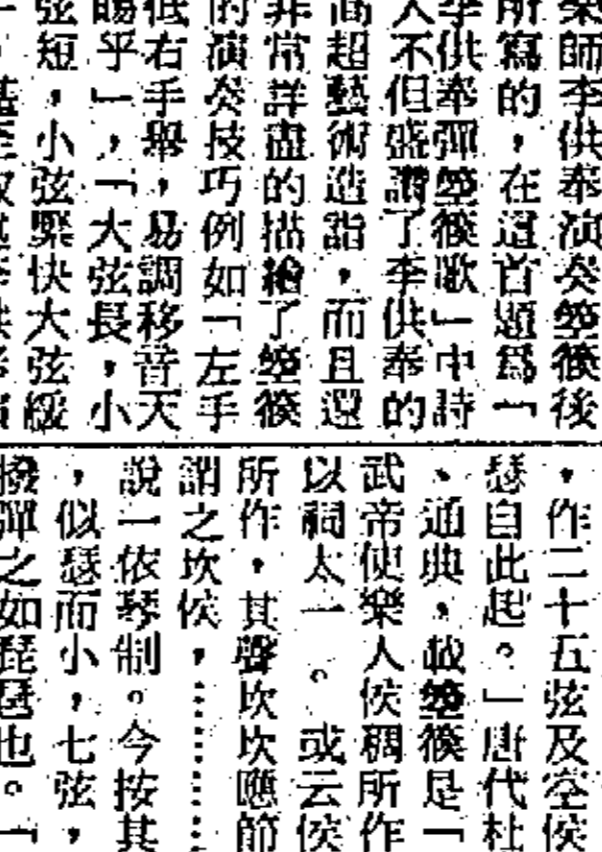 樂師李供奉演奏箜篌後
所寫的，在這首題爲「
李供奉彈箜篌歌」中詩
人不但盛讚了李供奉的
高超藝術造詣，而且還
非常詳盡的描繪了箜篌
的演奏技巧例如「左手
低右手舉，易調移音天
賜乎」，「大弦長，小
弦短，小弦緊快大弦緩
，作二十五弦及空侯
瑟自此起。」唐代杜
、通典，載箜篌是「
武帝使樂人侯稠所作
以祠太一。或云侯
所作，其聲坎坎應節
謂之坎侯，……
說一依琴制。今按其
，似瑟而小，七弦，
撥彈之如琵琶也。「